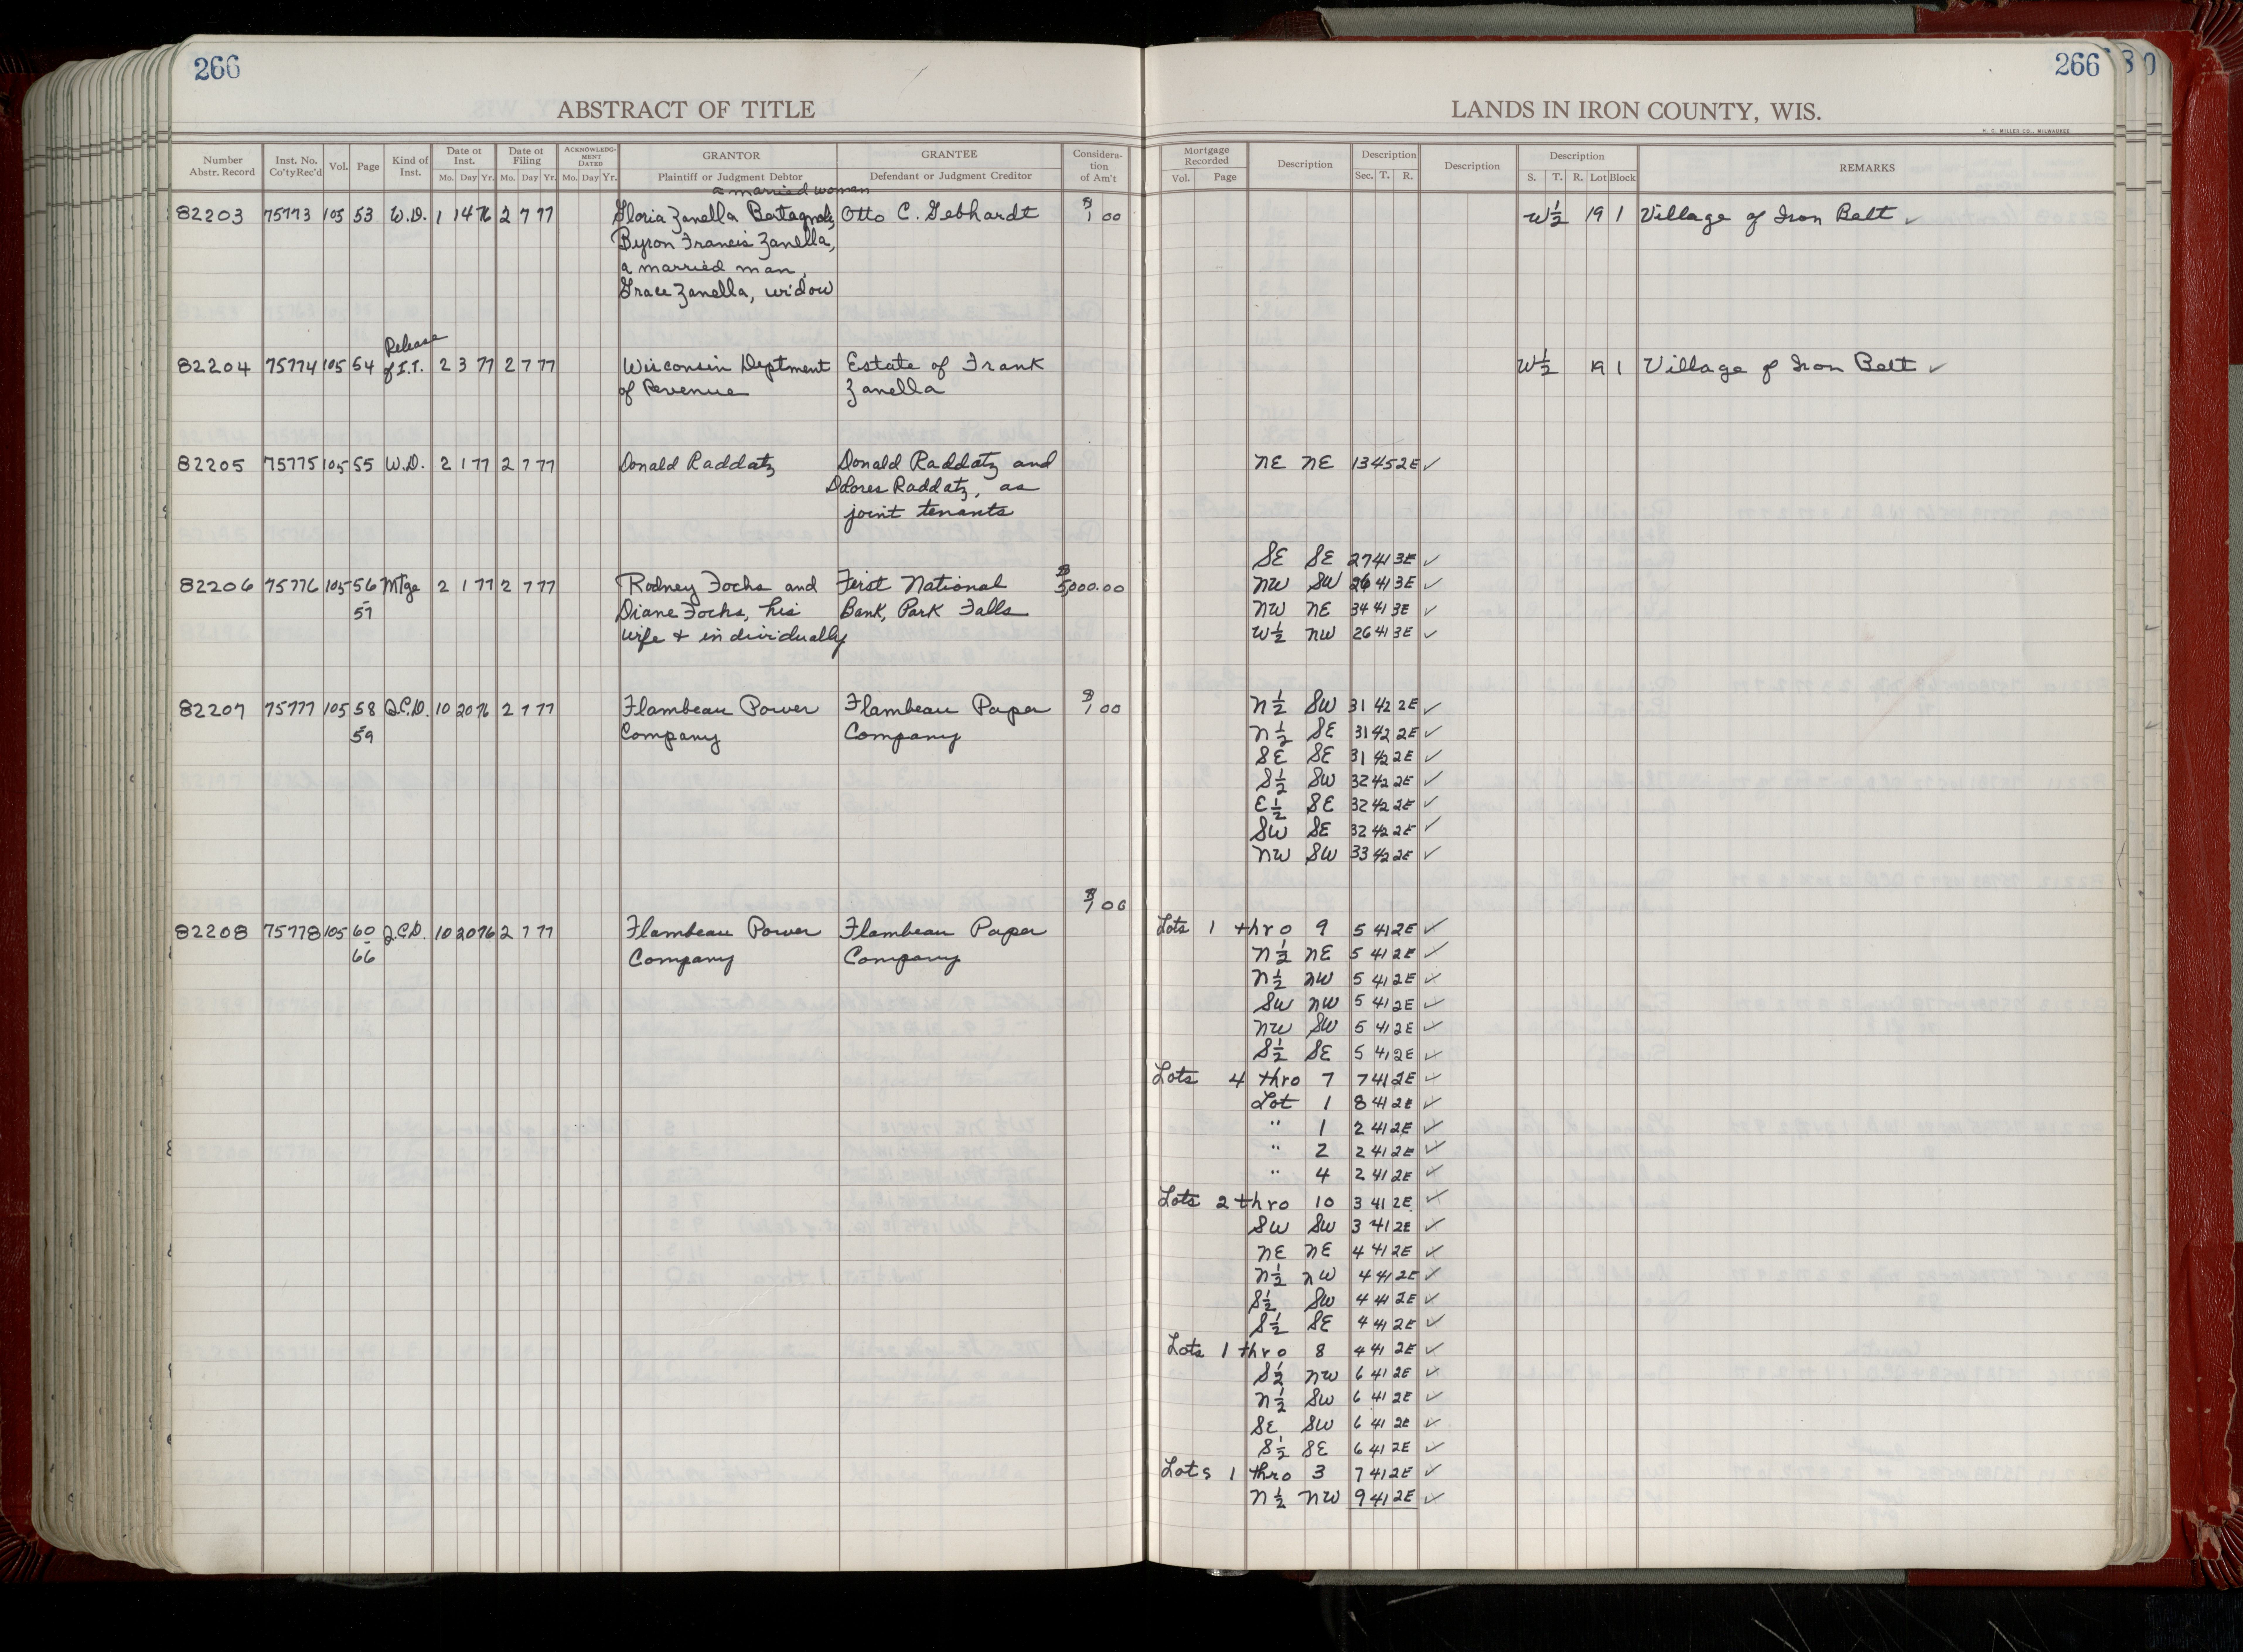 266
ABSTRACT OF TITLE
Number Abstr. Record Inst. No. Co'ty Rec'd Vol. Page Kind of Inst. Date of Inst. Mo. Day Yr. Date of Filing Mo. Day Yr. ACKNOWLEDGMENT DATED Mo. Day Yr. GRANTOR Plaintiff or Judgment Debtor GRANTEE Defendant or Judgment Creditor Consideration of Am't
a married woman
82203 75773 105 53 W.D. 1 14 76 2 7 77 Gloria Zanella Bertagnoli, Otto C. Gebhardt $1 00
Byron Francis Zanella,
a married man,
Grace Zanella, widow
Release
82204 75774 105 54 of I.T. 2 3 77 2 7 77 Wisconsin Deptment Estate of Frank
of Revenue Zanella
82205 75775 105 55 W.D. 2 1 77 2 7 77 Donald Raddatz Donald Raddatz and
Dolores Raddatz, as
joint tenants
82206 75776 105 56 Mtge 2 1 77 2 7 77 Rodney Fochs and First National $5,000.00
-57 Diane Fochs, his Bank, Park Falls
wife + individually
82207 75777 105 58 Q.C.D. 10 20 76 2 7 77 Flambeau Power Flambeau Paper $1 00
-59 Company Company
$1 00
82208 75778 105 60 Q.C.D. 10 20 76 2 7 77 Flambeau Power Flambeau Paper
-66 Company Company
266 80
LANDS IN IRON COUNTY, WIS.
H. C. MILLER CO., MILWAUKEE
Mortgage Recorded Vol. Page Description Description Sec. T. R. Description Description S. T. R. Lot Block REMARKS
W½ 19 1 Village of Iron Belt ✓
W½ 19 1 Village of Iron Belt ✓
NE NE 13 45 2E ✓
SE SE 27 41 3E ✓
NW SW 26 41 3E ✓
NW NE 34 41 3E ✓
W½ NW 26 41 3E ✓
N½ SW 31 42 2E ✓
N½ SE 31 42 2E ✓
SE SE 31 42 2E ✓
S½ SW 32 42 2E ✓
E½ SE 32 42 2E ✓
SW SE 32 42 2E ✓
NW SW 33 42 2E ✓
Lots 1 thro 9 5 41 2E ✓
N½ NE 5 41 2E ✓
N½ NW 5 41 2E ✓
SW NW 5 41 2E ✓
NW SW 5 41 2E ✓
S½ SE 5 41 2E ✓
Lots 4 thro 7 7 41 2E ✓
Lot 1 8 41 2E ✓
" 1 2 41 2E ✓
" 2 2 41 2E ✓
" 4 2 41 2E ✓
Lots 2 thro 10 3 41 2E ✓
SW SW 3 41 2E ✓
NE NE 4 41 2E ✓
N½ NW 4 41 2E ✓
S½ SW 4 41 2E ✓
S½ SE 4 41 2E ✓
Lots 1 thro 8 4 41 2E ✓
S½ NW 6 41 2E ✓
N½ SW 6 41 2E ✓
SE SW 6 41 2E ✓
S½ SE 6 41 2E ✓
Lots 1 thro 3 7 41 2E ✓
N½ NW 9 41 2E ✓